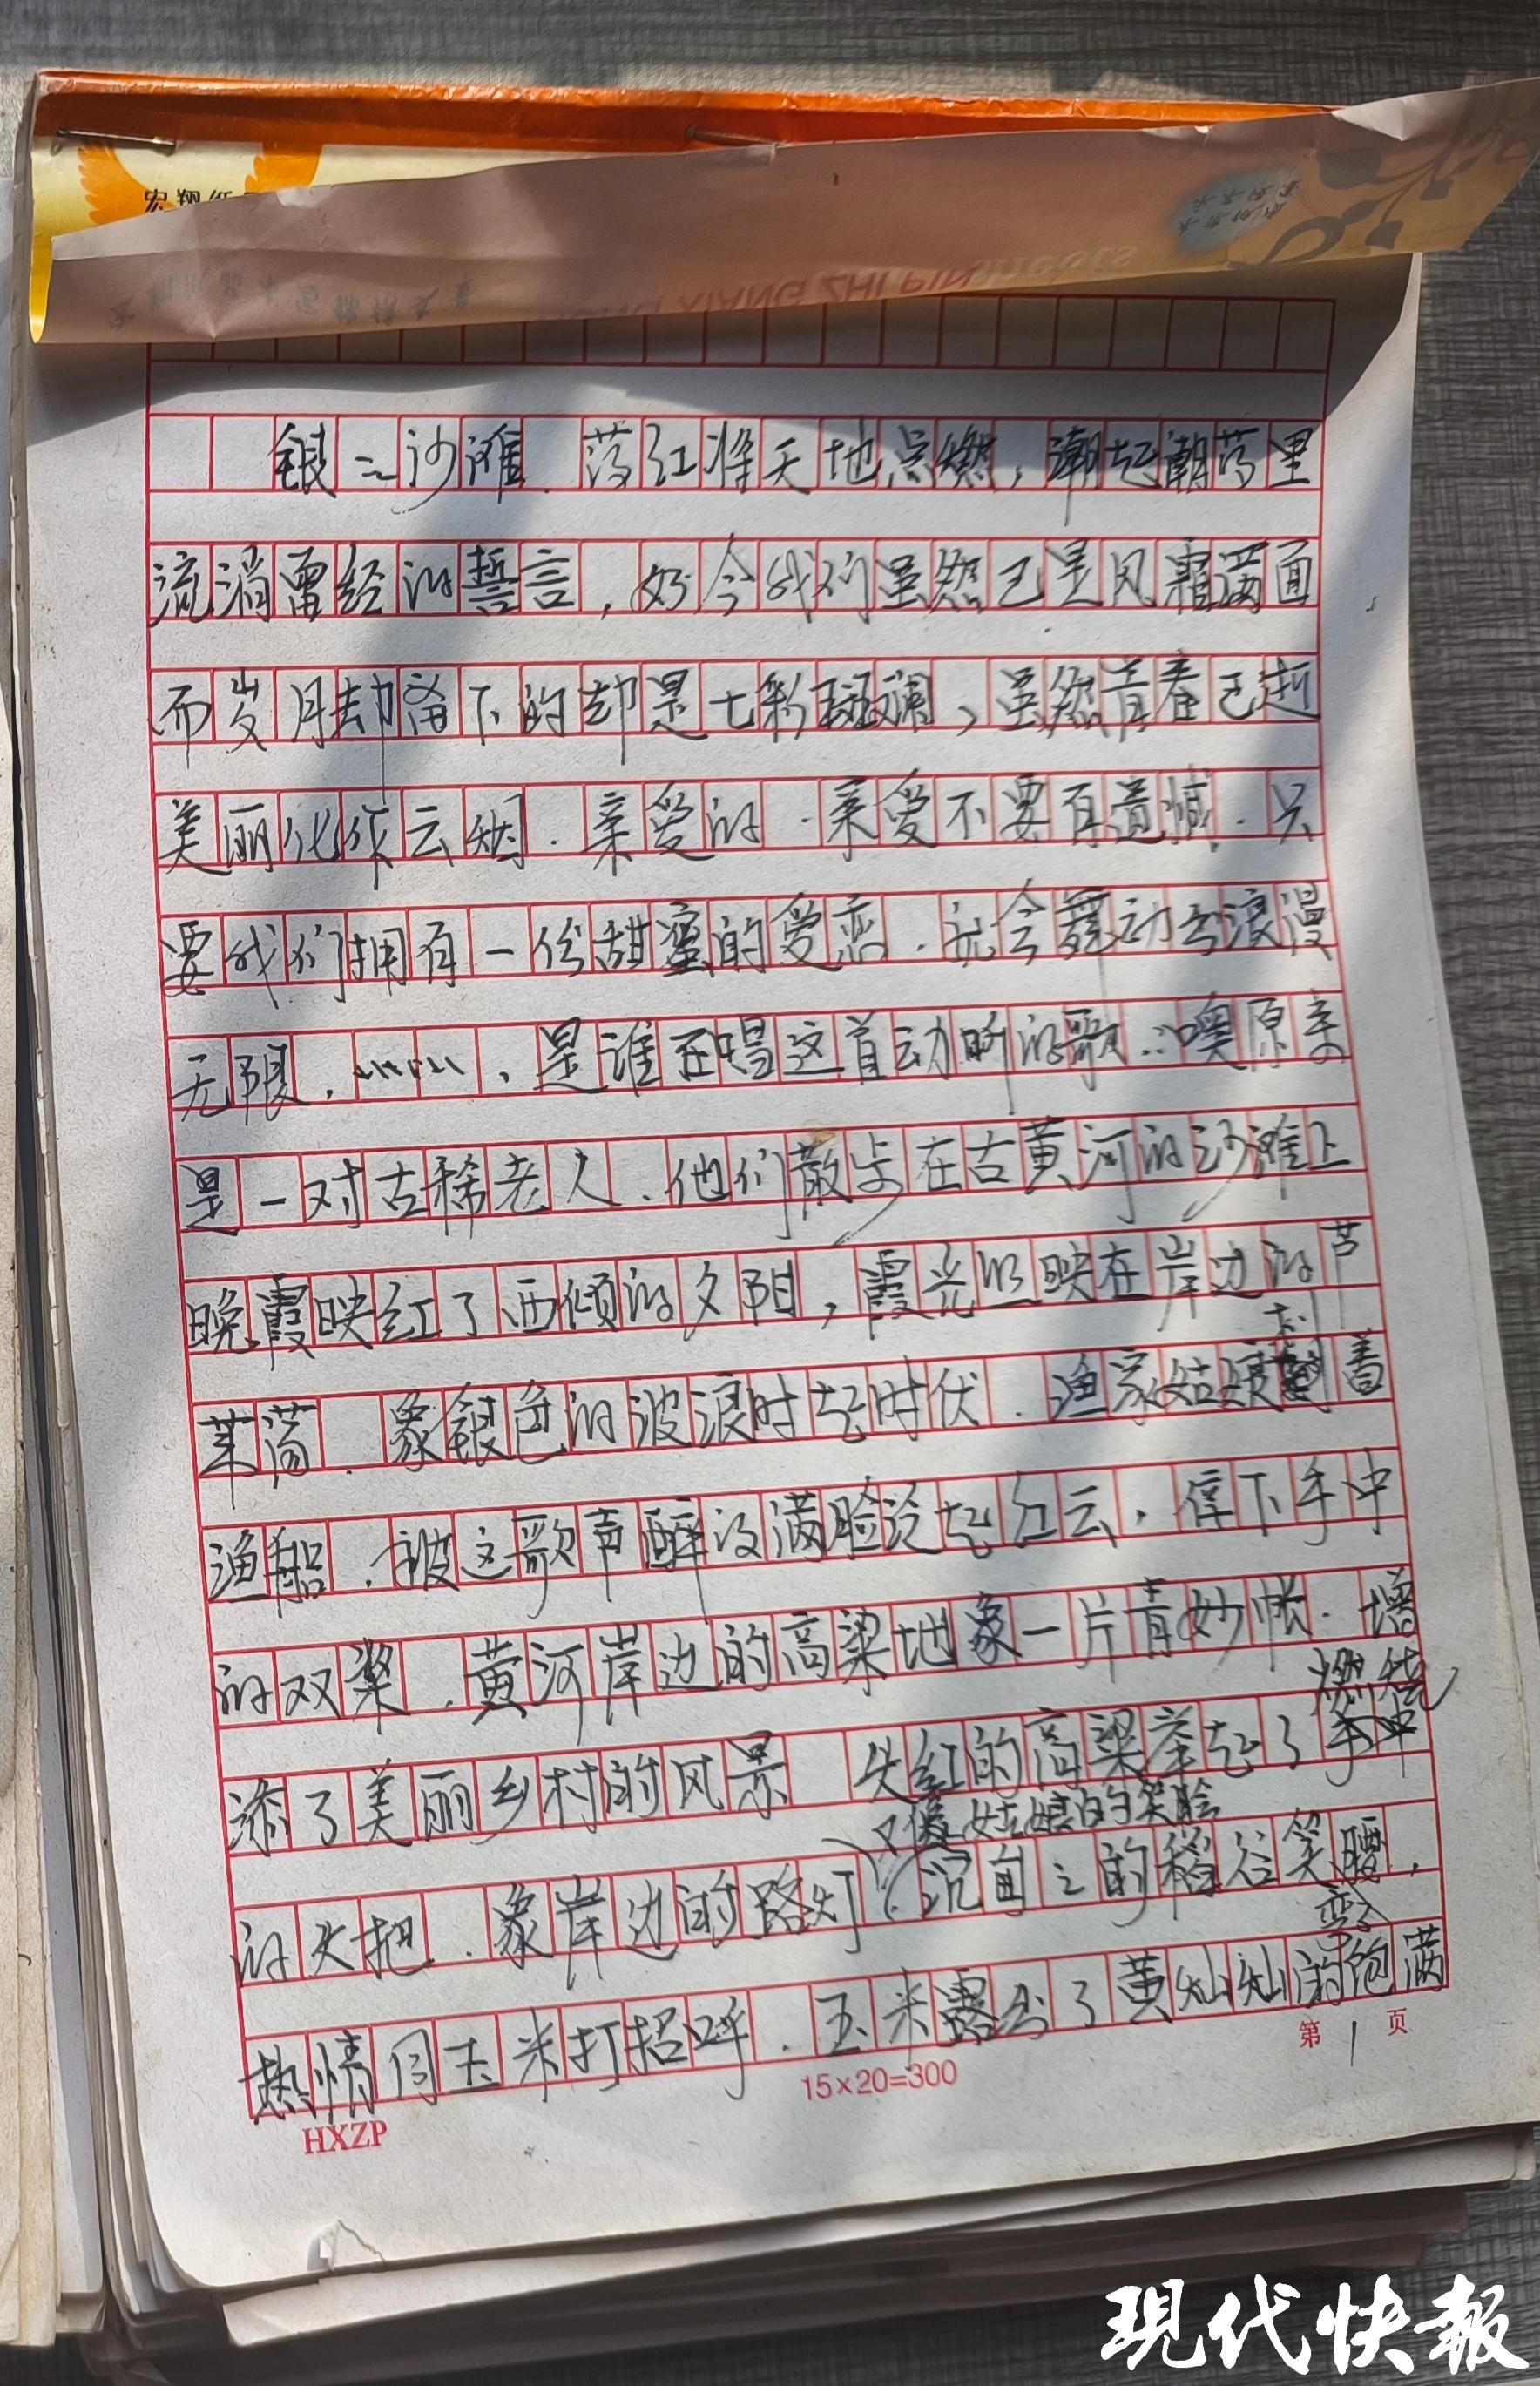 宏翔纸
银二沙滩.落红将天地点燃,潮起潮落里
流淌曾经的誓言,如今我们虽然已是风霜满面
而岁月却留下的却是七彩斑斓,虽然青春已逝
美丽化作云烟.亲爱的.亲爱不要有遗憾.只
要我们拥有一份甜蜜的爱恋.就会舞动出浪漫
无限.……,是谁在唱这首动听的歌…噢原来
是一对古稀老人.他们散步在古黄河的沙滩上
晚霞映红了西倾的夕阳,霞光照映在岸边的芦
苇荡.象银色的波浪时起时伏.渔家姑娘划着
渔船.被这歌声醉的满脸泛起红云.停下手中
的双桨.黄河岸边的高粱地象一片青妙帐.增
燃烧
添了美丽乡村的风景 火红的高粱举起了手中
又像姑娘的笑脸
的火把.象岸边的路灯.沉甸之的稻谷笑腰,
弯
热情同玉米打招呼.玉米露出了黄灿灿的饱满
第1页
15×20=300
HXZP
現代快報